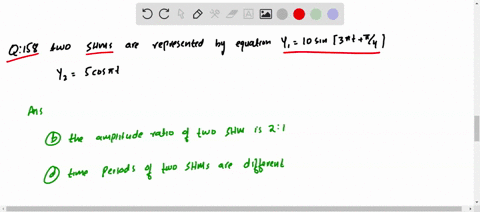 Q:158 two SHMs are represented by equation Y₁ = 10 sin [3πt + π/4]
Y₂ = 5 cos πt
Ans
(b) the amplitude ratio of two SHM is 2:1
(d) time periods of two SHMs are different